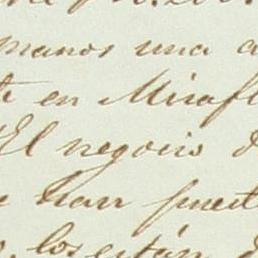 manos una
en Mirafl
El negocio d
e han puest
los están d